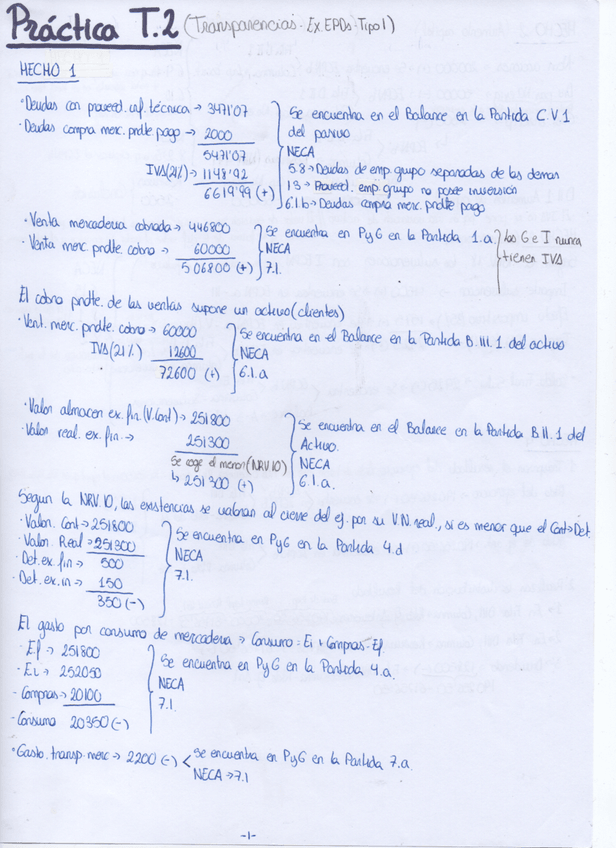 Práctica T.2 (Transparencias - Ex. EPDs. Tipo 1)
HECHO 1
· Deudas con proveed. inf. técnica → 3471'07
· Deudas compra merc. pndte pago → 2000
5471'07
IVA (21%) → 1148'92
6619'99 (+)
Se encuentra en el Balance en la Partida C.V.1
del pasivo
NECA
5.8 → Deudas de emp. grupo separadas de las demas
13 → Proveed. emp. grupo no posee inversión
6.1.b → Deudas compra merc. pndte pago
· Venta mercaderia cobrada → 446800
· Venta merc. pndte cobro → 60000
506800 (+)
Se encuentra en PyG en la Partida 1.a.
NECA
7.1.
Los G e I nunca
tienen IVA
El cobro pndte. de las ventas supone un activo (clientes)
· Vent. merc. pndte. cobro → 60000
IVA (21%) 12600
72600 (+)
Se encuentra en el Balance en la Partida B.III.1 del activo
NECA
6.1.a
· Valor almacen ex. fin. (V. Cont) → 251800
· Valor real. ex. fin. → 251300
Se coge el menor (NRV 10)
↳ 251300 (+)
Se encuentra en el Balance en la Partida B.II.1 del
Activo.
NECA
6.1.a.
Segun la NRV.10, las existencias se valoran al cierre del ej. por su V.N. real., si es menor que el Cont → Det
· Valor. Cont → 251800
· Valor. Real → 251300
· Det. ex. fin → 500
· Det. ex. in → 150
350 (-)
Se encuentra en PyG en la Partida 4.d
NECA
7.1.
El gasto por consumo de mercaderia → Consumo = Ei + Compras - Ef
· Ef → 251800
· Ei → 252050
· Compras → 20100
· Consumo 20350 (-)
Se encuentra en PyG en la Partida 4.a.
NECA
7.1.
· Gasto. transp. merc → 2200 (-)
Se encuentra en PyG en la Partida 7.a.
NECA → 7.1
-1-